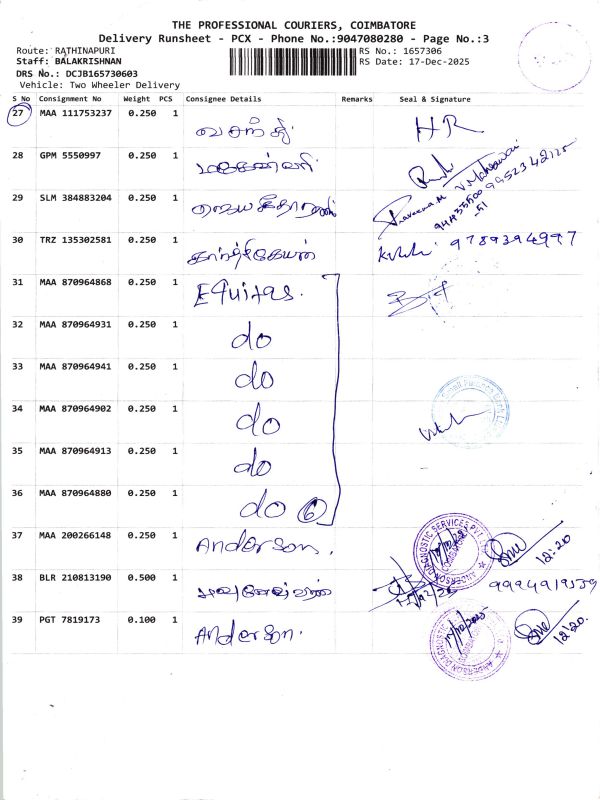 THE PROFESSIONAL COURIERS, COIMBATORE
Delivery Runsheet - PCX - Phone No.:9047080280 - Page No.:3
Route: RATHINAPURI
RS No.: 1657306
Staff: BALAKRISHNAN
RS Date: 17-Dec-2025
DRS No.: DCJB165730603
Vehicle: Two Wheeler Delivery
S No Consignment No Weight PCS Consignee Details Remarks Seal & Signature
27 MAA 111753237 0.250 1 வசந்தி HR
28 GPM 5550997 0.250 1 மகேஸ்வரி V. Maheswari 9952342125
29 SLM 384883204 0.250 1 Praveena M
30 TRZ 135302581 0.250 1 கார்த்திகேயன் 9789394997
31 MAA 870964868 0.250 1 Equitas.
32 MAA 870964931 0.250 1 do
33 MAA 870964941 0.250 1 do
34 MAA 870964902 0.250 1 do
35 MAA 870964913 0.250 1 do
36 MAA 870964880 0.250 1 do 6
37 MAA 200266148 0.250 1 Anderson. ANDERSON DIAGNOSTIC SERVICES PVT 12:20
38 BLR 210813190 0.500 1
39 PGT 7819173 0.100 1 Anderson. ANDERSON DIAGNOSTIC 17/12/2025 12:20